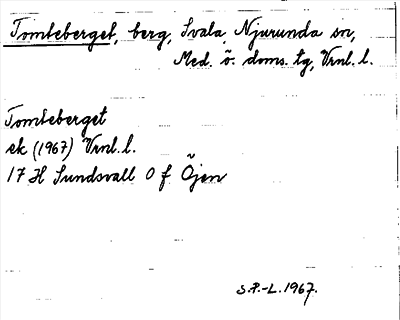 Tomteberget, berg, Svala, Njurunda sn,
Med. ö. doms. tg, Vrnl. l.
Tomteberget
ek (1967) Vrnl. l.
17 H Sundsvall 0 f Öjen
S.P.-L. 1967.